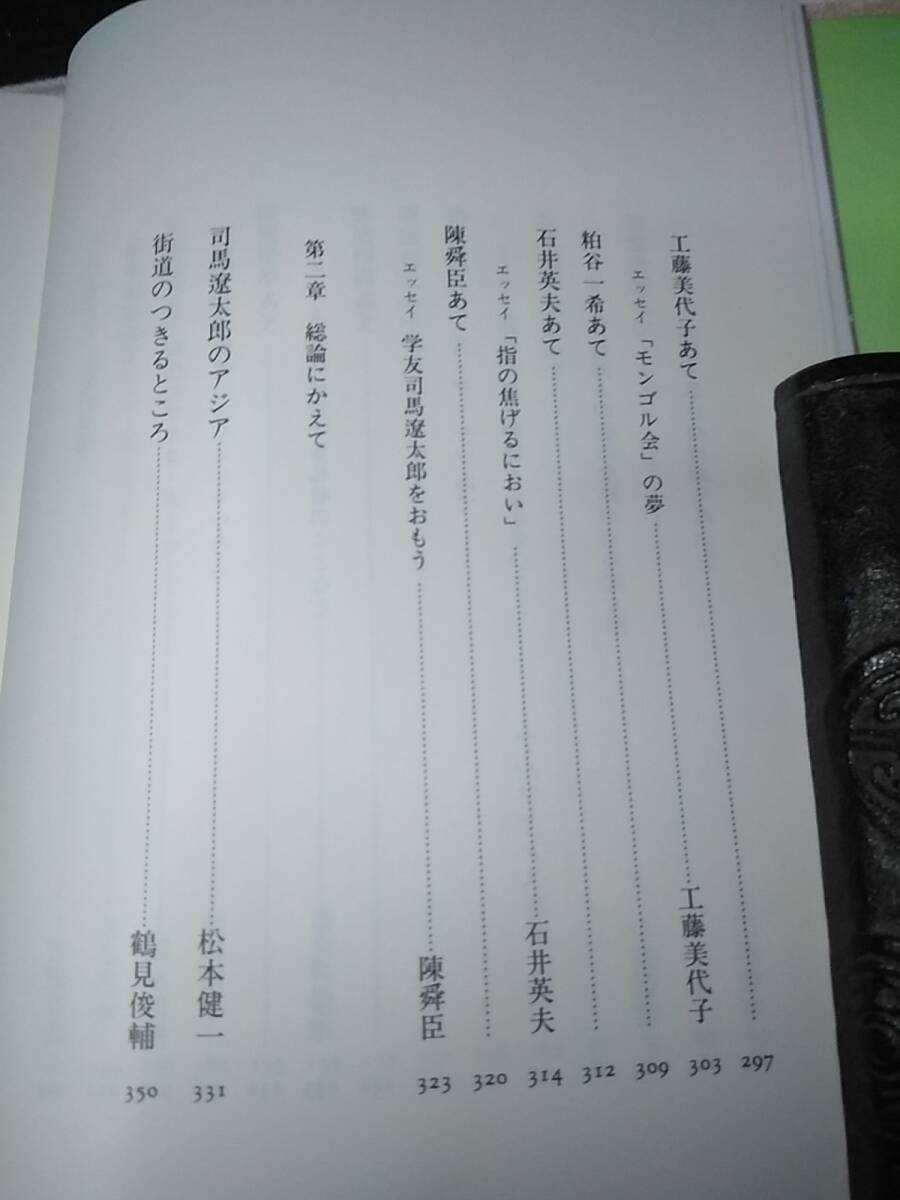 工藤美代子あて……297
エッセイ 「モンゴル会」の夢……工藤美代子 303
粕谷一希あて……309
石井英夫あて……312
エッセイ 「指の焦げるにおい」……石井英夫 314
陳舜臣あて……320
エッセイ 学友司馬遼太郎をおもう……陳舜臣 323
第二章 総論にかえて
司馬遼太郎のアジア……松本健一 331
街道のつきるところ……鶴見俊輔 350